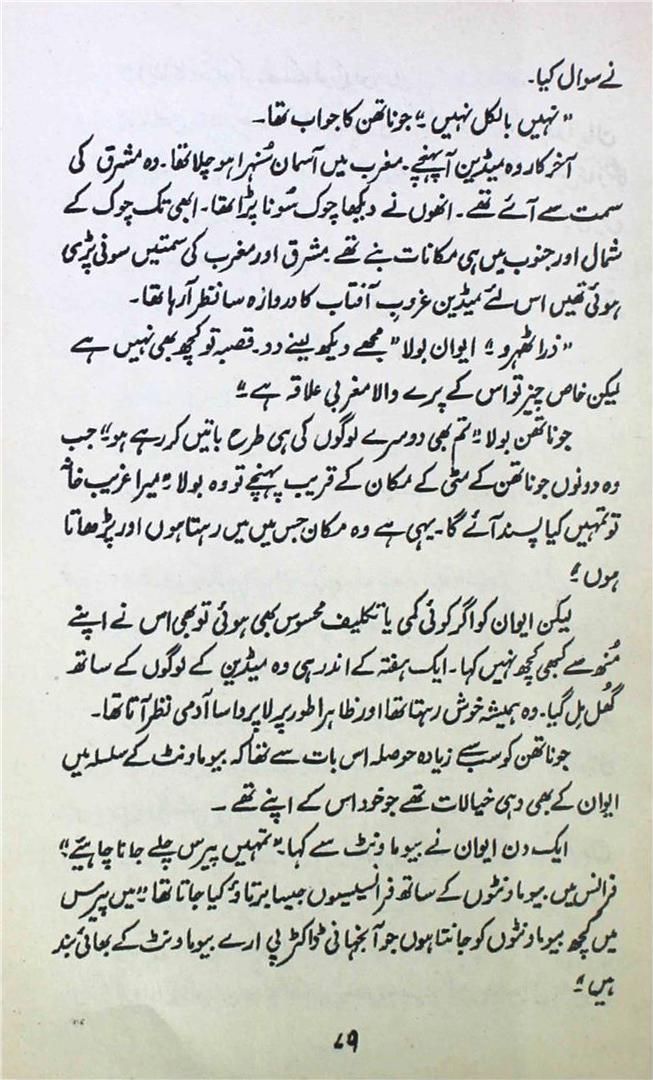 نے سوال کیا۔
”نہیں بالکل نہیں“؛ جوناتھن کا جواب تھا۔
آخر کار وہ میڈین آپہنچے۔ مغرب میں آسمان سُنہرا ہو چلا تھا۔ وہ مشرق کی
سمت سے آئے تھے۔ انھوں نے دیکھا چوک سُونا پڑا تھا۔ ابھی تک چوک کے
شمال اور جنوب میں ہی مکانات بنے تھے۔ مشرق اور مغرب کی سمتیں سونی پڑی
ہوئی تھیں اس لئے میڈین غروبِ آفتاب کا دروازہ سا نظر آرہا تھا۔
”ذرا ٹھہرو“؛ ایوان بولا ”مجھے دیکھ لینے دو۔ قصبہ تو کچھ بھی نہیں ہے
لیکن خاص چیز تو اس کے پرے والا مغربی علاقہ ہے“؛
جوناتھن بولا ”تم بھی دوسرے لوگوں کی ہی طرح باتیں کر رہے ہو“؛ جب
وہ دونوں جوناتھن کے مٹی کے مکان کے قریب پہنچے تو وہ بولا ”میرا غریب خانہ
تو تمہیں کیا پسند آئے گا۔ یہی ہے وہ مکان جس میں میں رہتا ہوں اور پڑھاتا
ہوں“؛
لیکن ایوان کو اگر کوئی کمی یا تکلیف محسوس بھی ہوئی تو بھی اس نے اپنے
مُنھ سے کبھی کچھ نہیں کہا۔ ایک ہفتہ کے اندر ہی وہ میڈین کے لوگوں کے ساتھ
گھُل مِل گیا۔ وہ ہمیشہ خوش رہتا تھا اور ظاہرا طور پر لاپروا سا آدمی نظر آتا تھا۔
جوناتھن کو سب سے زیادہ حوصلہ اس بات سے تھا کہ بیوماونٹ کے سلسلہ میں
ایوان کے بھی وہی خیالات تھے جو خود اس کے اپنے تھے۔
ایک دن ایوان نے بیوماونٹ سے کہا۔ ”تمہیں پیرس چلے جانا چاہیئے“؛
فرانس میں بیوماونٹوں کے ساتھ فرانسیسیوں جیسا برتاؤ کیا جاتا تھا ”میں پیرس
میں کچھ بیوماونٹوں کو جانتا ہوں جو آنجہانی ڈاکٹر پی ارے بیوماونٹ کے بھائی بند
ہیں“؛
۷۹